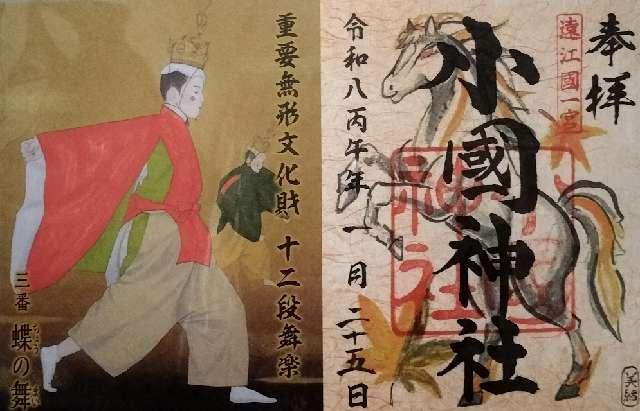 奉拝
遠江國一宮
小國神社
令和八丙午年一月二十五日
重要無形文化財 十二段舞楽
三番 蝶の舞
ちょう まい